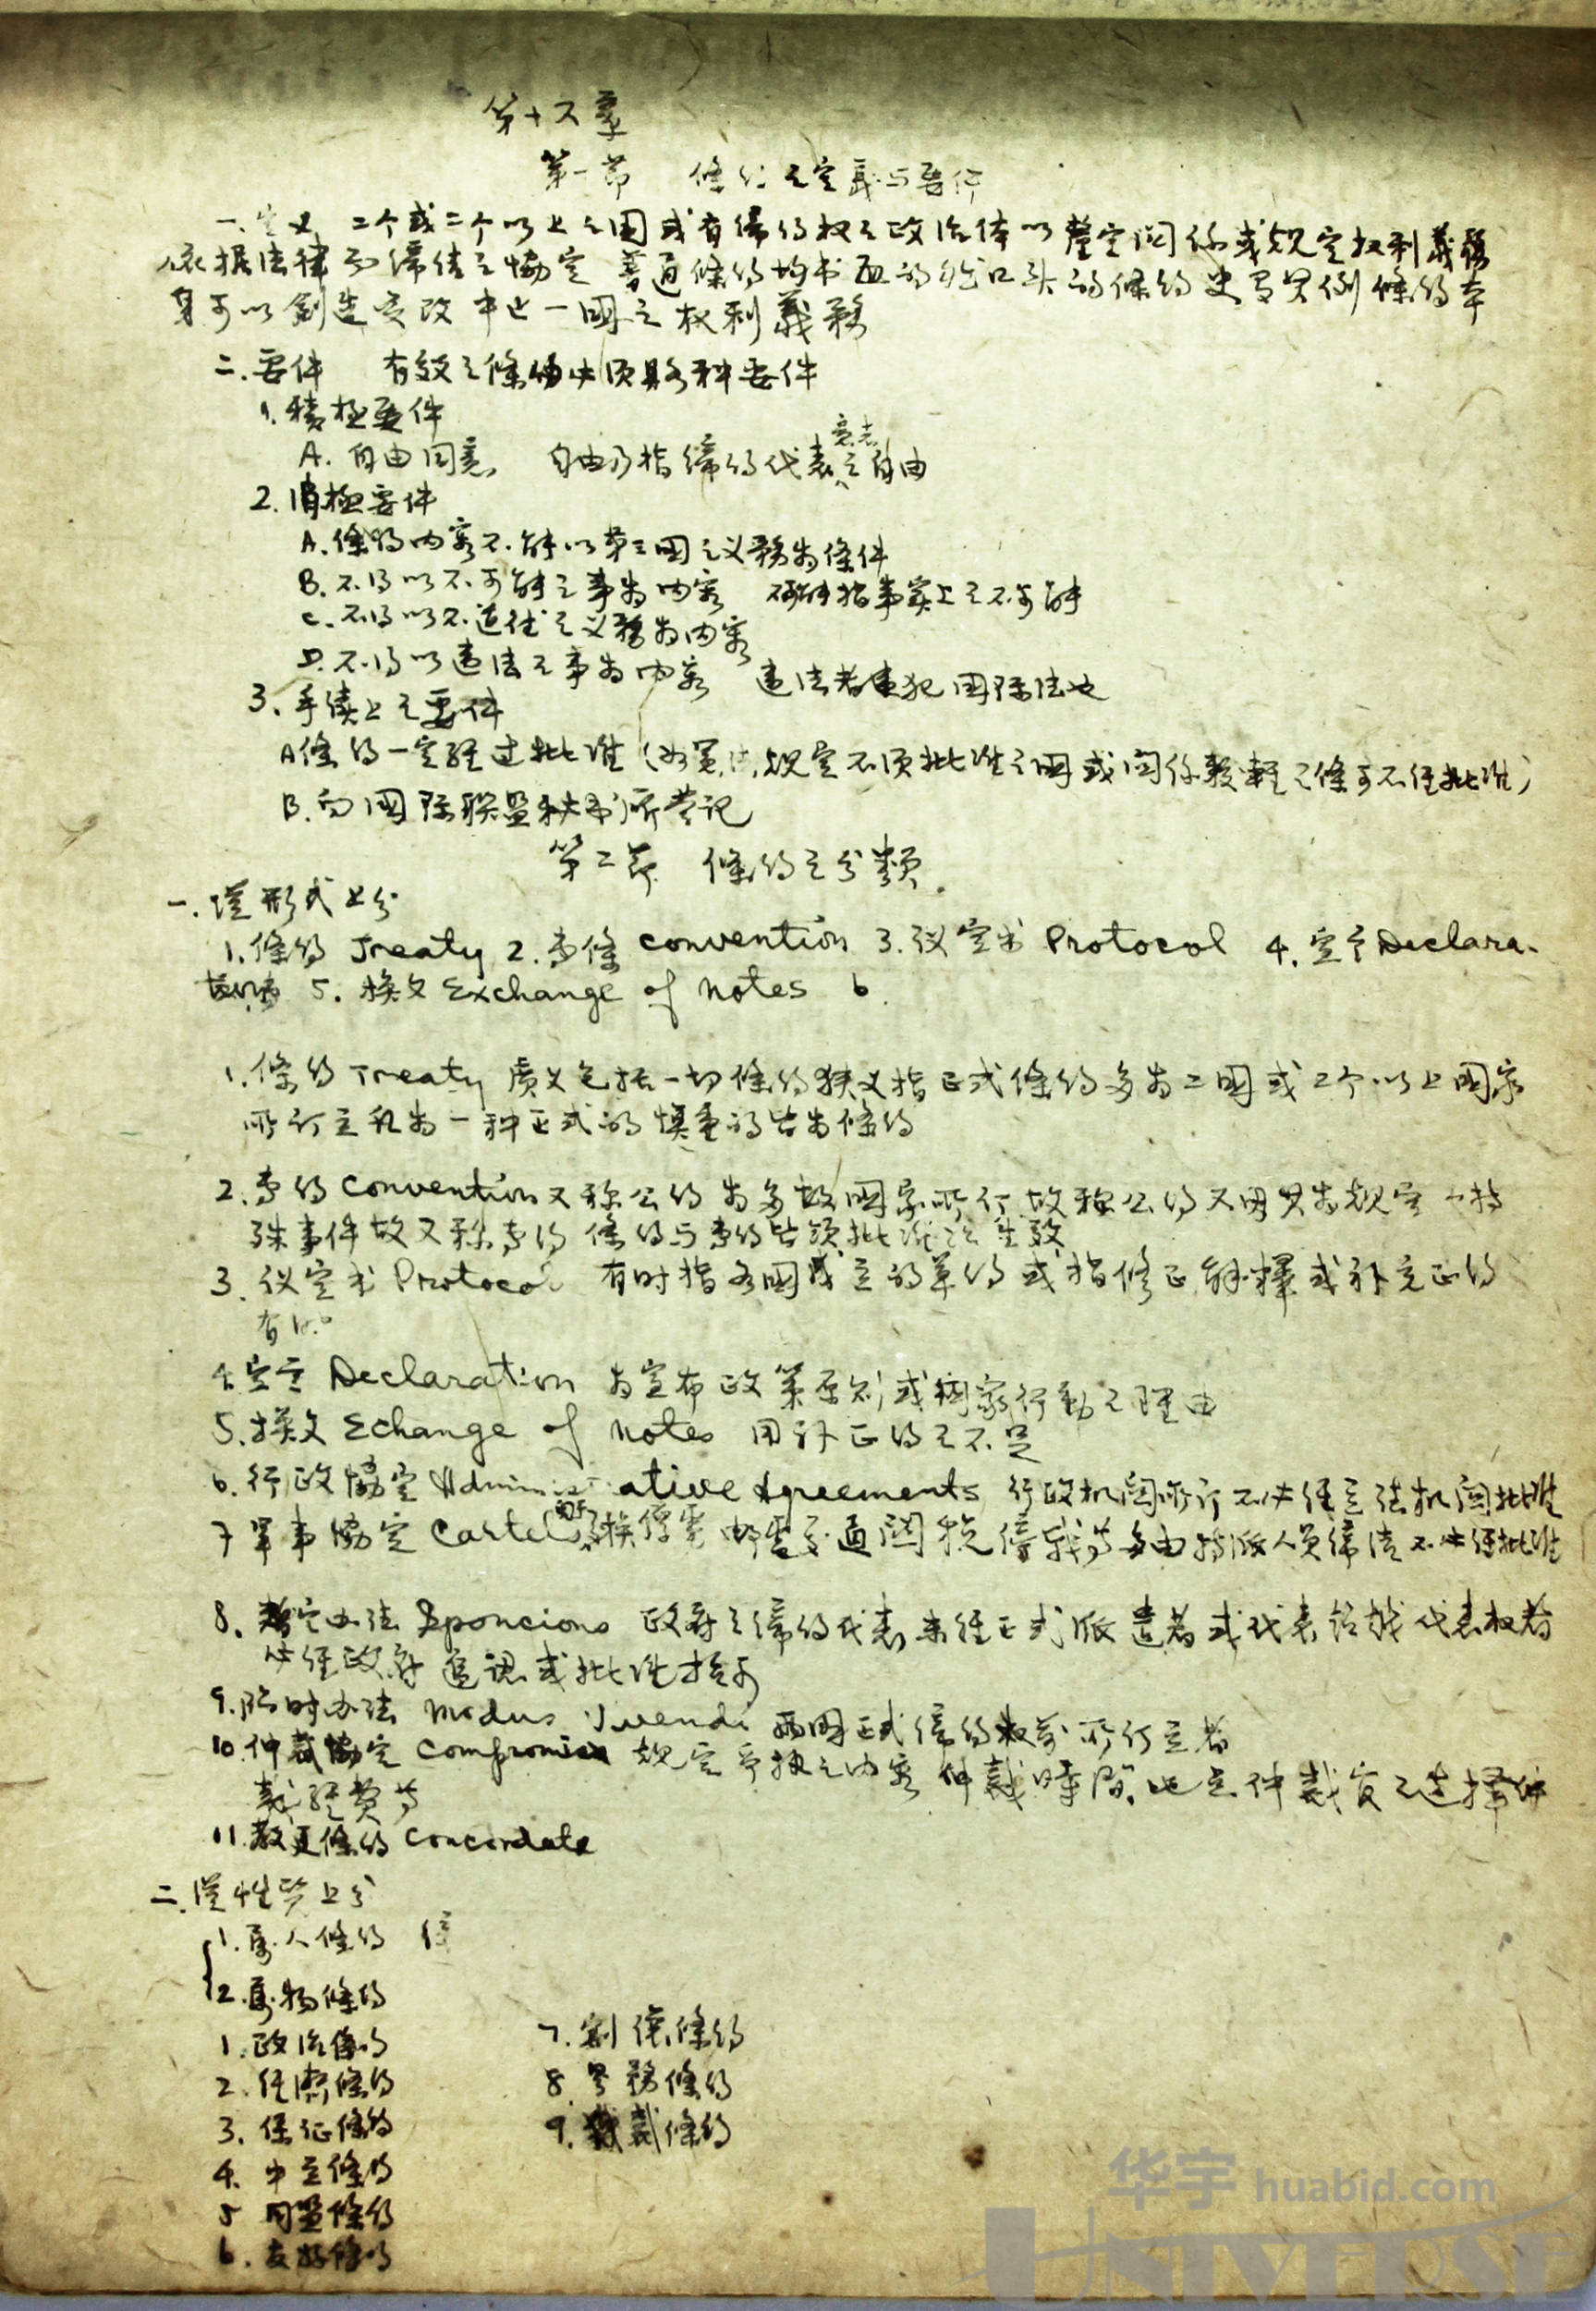 第十六章
第一节 條约之定義与要件
一.定义 二个或二个以上之国或有缔约权之政治体以釐定関係或规定权利義務
依据法律而缔结之協定 普通條约均书面的 口头的條约史有先例條约本
身可以創造变改中止一國之权利義務
二.要件 有效之條约必须具各种要件
1.積極要件
A.自由同意 自由乃指缔约代表意志之自由
2.消極要件
A.條约内容不能以第三国之义務为條件
B.不得以不可能之事为内容 不能指事実上之不可能
C.不得以不道德之义務为内容
D.不得以违法之事为内容 违法者违犯国际法也
3.手续上之要件
A條约一定經过批准(如宪法规定不须批准之国或関係較輕之條可不经批准)
B.向國际联盟秘书所登记
第二节 條约之分類.
一.從形式上分
1.條约 Treaty 2.专條 convention 3.议定书 Protocol 4.宣言 Declara-
5.換文 Exchange of notes 6
1.條约 Treaty 廣义包括一切條约狭义指正式條约多为二國或二个以上国家
所订立凡为一种正式的慎重的皆为條约
2.专约 Convention 又称公约 为多数國家所订故称公约又因其为规定一特
殊事件故又称专约 條约与专约皆须批准 生效
3.议定书 Protocol 有时指各國成立的草约或指修正解釋或补充正约
有
4.宣言 Declaration 为宣布政策原则或國家行動之理由
5.換文 Echange of notes 用补正约之不足
6.行政協定 Administrative Agreements 行政机関所订不必经立法机関批准
7 軍事協定 Cartels 換俘虏邮電交通関税停战等多由特派人员缔结不必经批准
8. 定办法 Sponcions 政府之缔约代表未经正式派遣者或代表 代表权者
必经政府追認或批准才可
9.临时办法 modus Vivendi 两国正式缔约 前所订立者
10.仲裁協定 Compromise 规定争执之内容仲裁時間地点仲裁員之选擇仲
裁經費等
11.教廷條约 Concordate
二.從性質上分
1.属人條约
2.属物條约
1.政治條约
2.经濟條约
3.保证條约
4.中立條约
5 同盟條约
6.友好條约
7.割讓條约
8 劳務條约
9. 裁條约
华宇 huabid.com
UNIVERSE